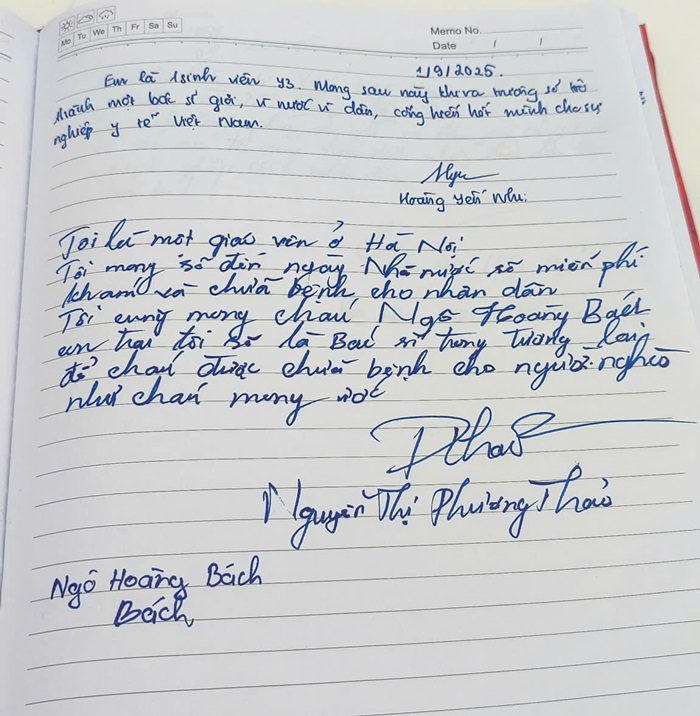 Mo Tu We Th Fr Sa Su
Memo No.
Date / /
1/9/2025.
Em là 1 sinh viên Y3. Mong sau này khi ra trường sẽ trở
thành một bác sĩ giỏi, vì nước vì dân, cống hiến hết mình cho sự
nghiệp y tế Việt Nam.
Như
Hoàng Yến Như.
Tôi là một giáo viên ở Hà Nội
Tôi mong sẽ đến ngày Nhà nước sẽ miễn phí
khám và chữa bệnh cho nhân dân
Tôi cũng mong cháu Ngô Hoàng Bách
con trai tôi sẽ là Bác sĩ trong tương lai
để cháu được chữa bệnh cho người nghèo
như cháu mong ước
PThao
Nguyễn Thị Phương Thảo
Ngô Hoàng Bách
Bách